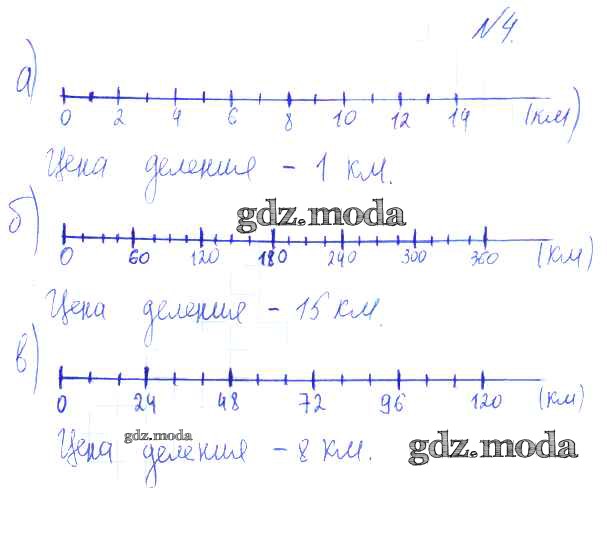 №4.
а)
0 2 4 6 8 10 12 14 (км)
Цена деления - 1 км.
gdz.moda
б)
0 60 120 180 240 300 360 (км)
Цена деления - 15 км.
в)
0 24 48 72 96 120 (км)
gdz.moda
Цена деления - 8 км.
gdz.moda